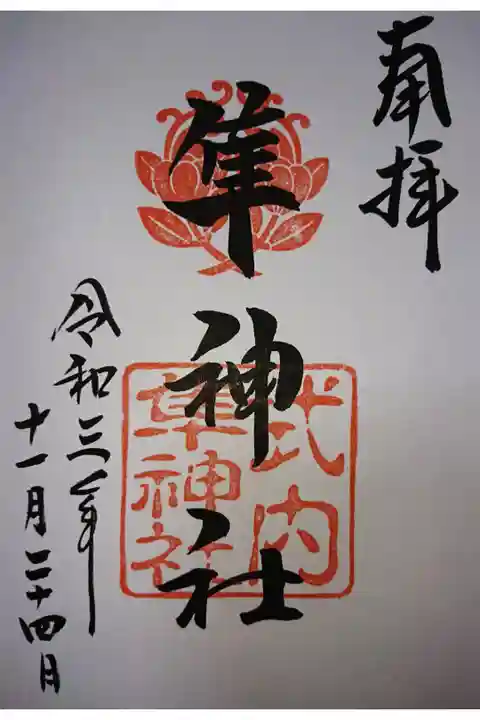 奉拝
隼神社
式内
隼神社
令和三年
十一月二十四日